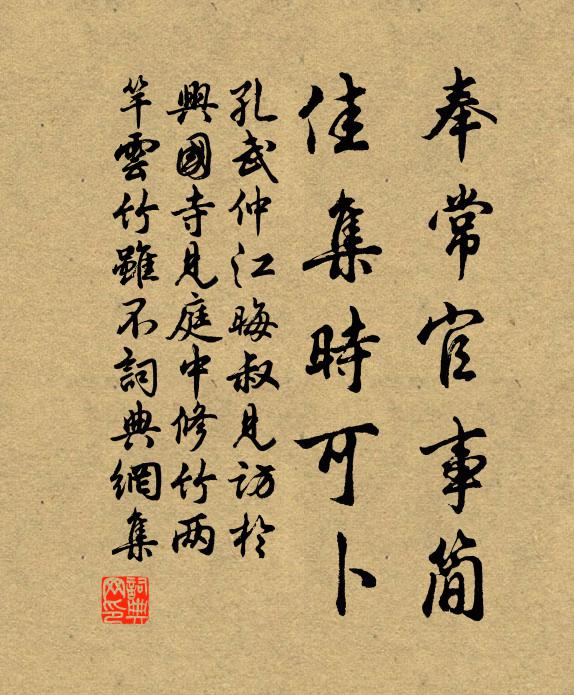 奉常官事簡
佳集時可卜
孔武仲江晦叔見訪於
興國寺見庭中修竹两
竿雲竹雖不詞典網集
詞典网印